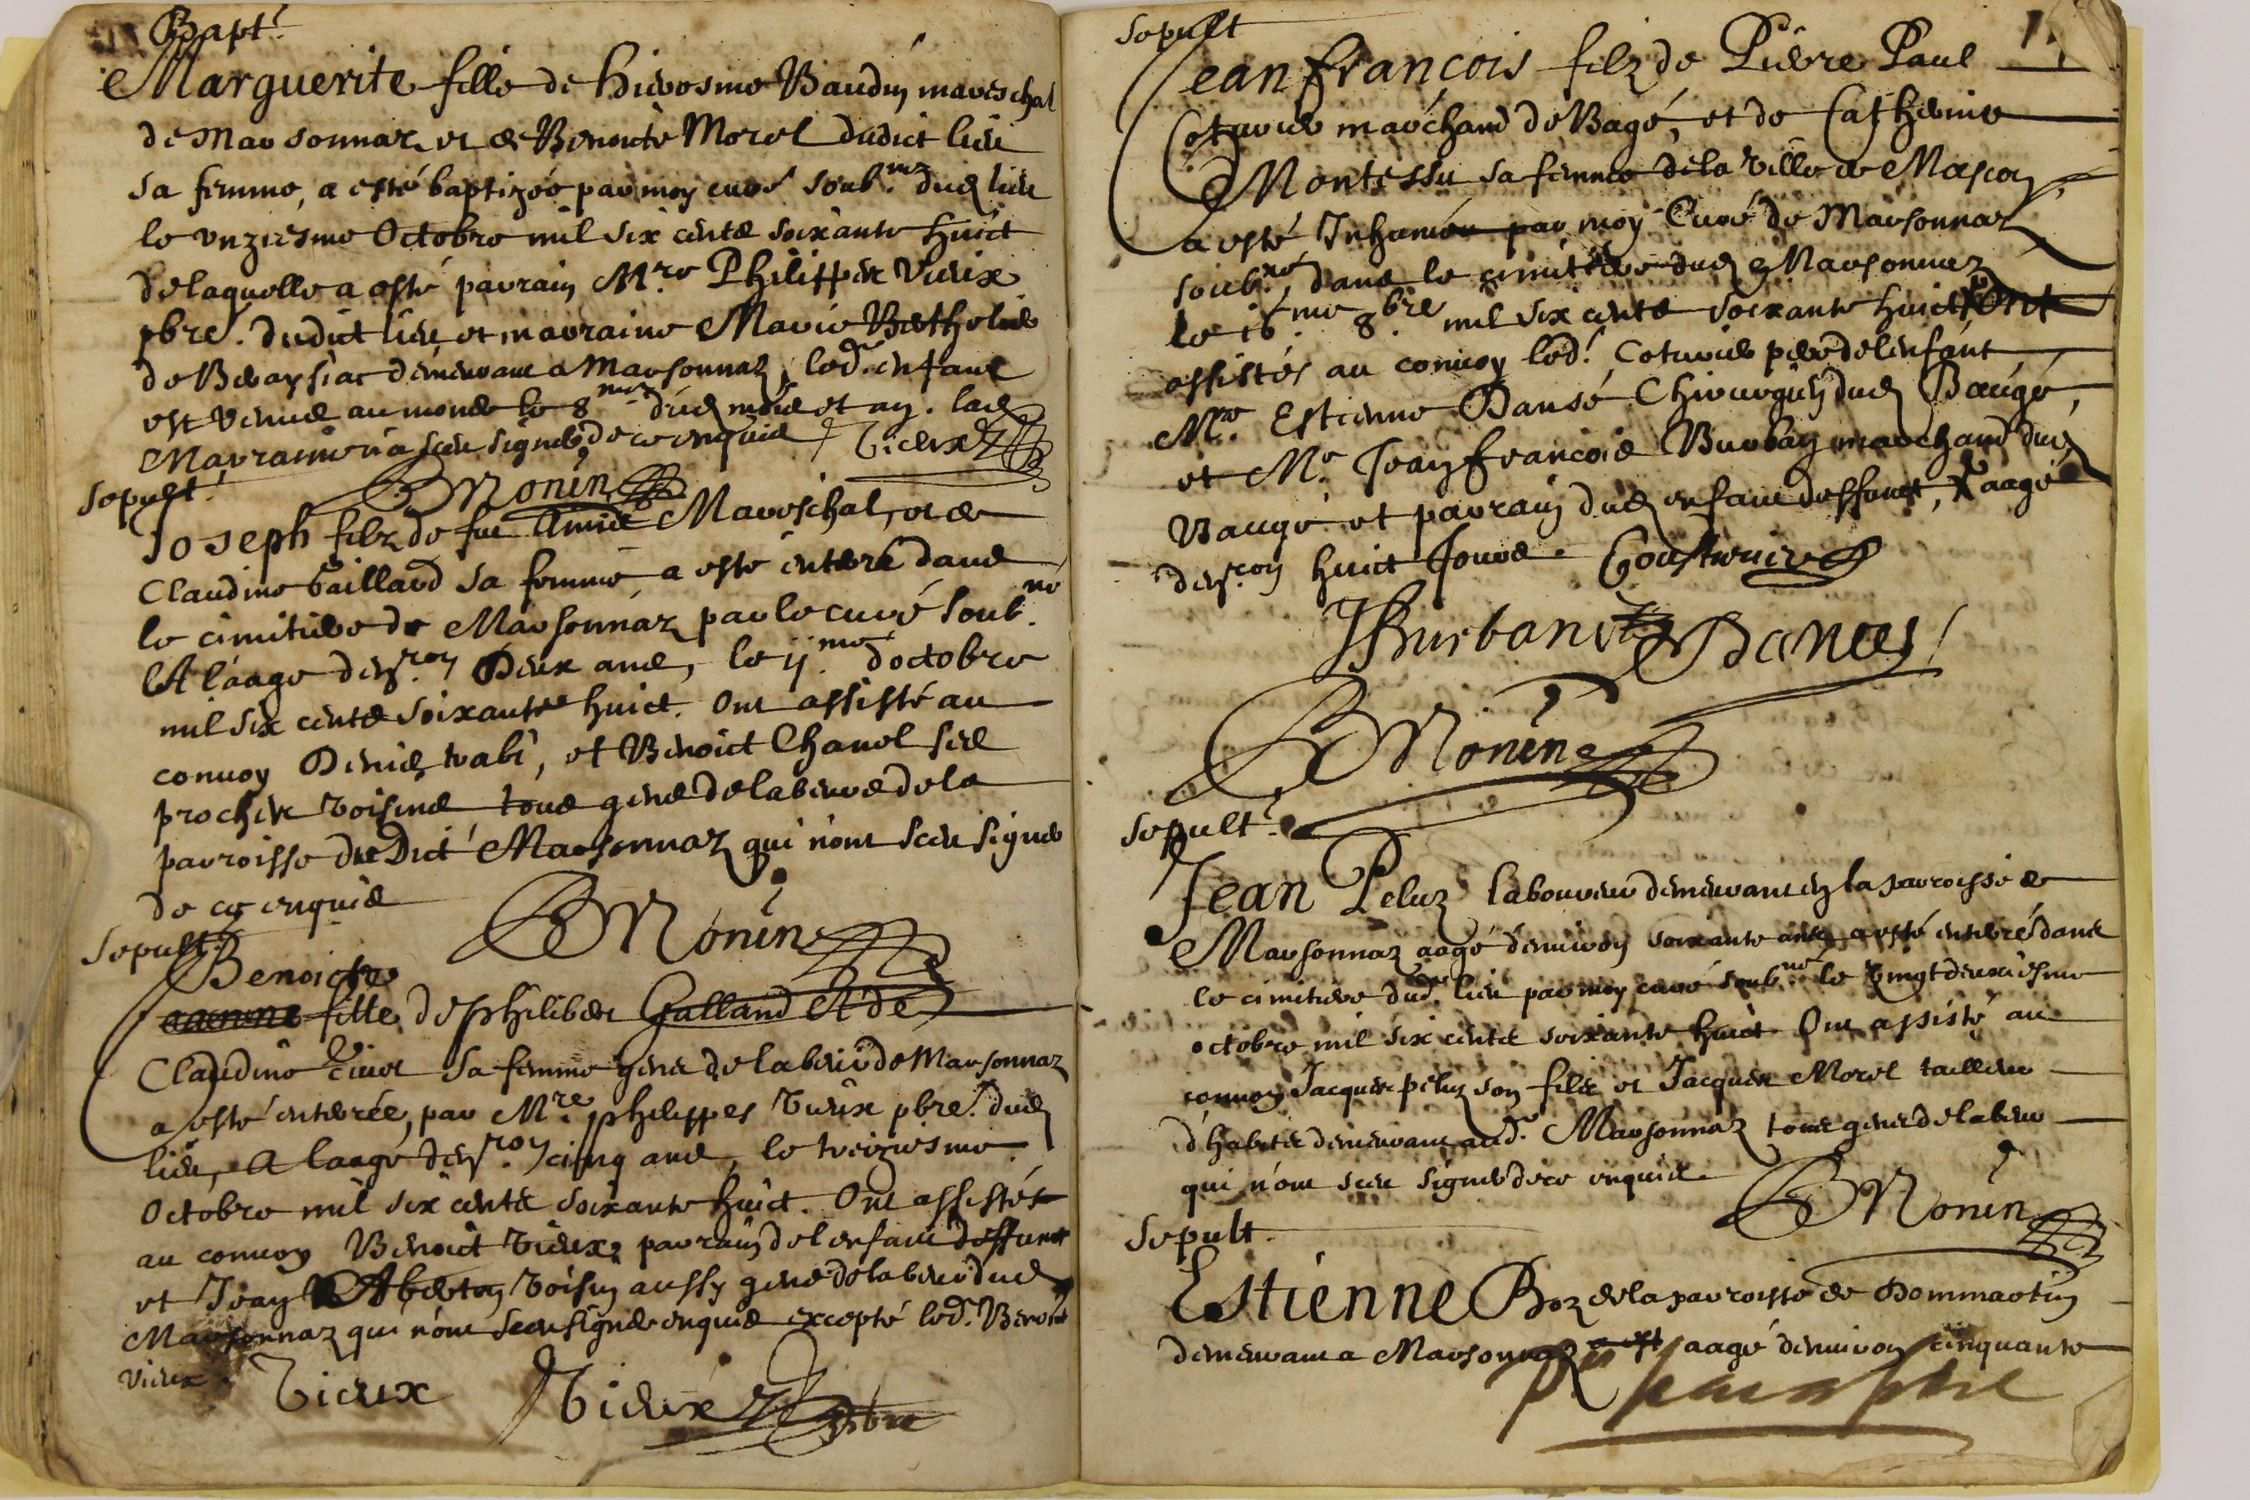 Bapt.
Marguerite fille de hierosme Baudin mareschal
de Marsonnaz et de Benoite Morel dudict lieu
sa femme, a esté baptizée par moy curé soub.né dud lieu
le unziesme Octobre mil six cents soixante huict
de laquelle a esté parrain M.re Philippes Vieux
pbre. dudict lieu et marraine Marie
de demeurant a Marsonnaz, led. enfant
est venue au monde le 8.me dud mois et an. lad
Marraine n'a sceu signer de ce enquise Vieux
BMonin
Sepult.
Joseph filz de feu Mareschal, et de
Claudine Gaillard sa femme a esté enterré dans
le cimitiere de Marsonnaz par le curé soub.né
A l'aage d'env.ron Deux ans, le 11.me d'octobre
mil six cents soixante huict. Ont assisté au
convoy Denis trabi, et Benoict Chanel ses
proches voisins tous gens de labeur de la
parroisse du Dict Marsonnaz qui n'ont sceu signer
de ce enquis
BMonin
Sepult.
Benoicte
fille de philiber Galland et de
Claudine sa femme gens de labeur de Marsonnaz
a esté enterrée, par M.re philippes Vieux pbre. dud
lieu, A laage d'env.ron cinq ans, le treiziesme
Octobre mil six cents soixante huict. Ont assistés
au convoy Benoict Vieux parrain de l'enfant deffunct
et Jean voisin aussy gens de labeur dud
Marsonnaz qui n'ont sceu signer enquis excepté led. Benoit
Vieux.
Vieux Vieux pbre
Sepult
Jean françois filz de Pierre Paul
Coturier marchand de Bagé, et de Catherine
Montessu sa femme de la ville de Mascon
a esté Inhumé par moy Curé de Marsonnaz
soub.né, dans le cimitiere dud Marsonnaz
le 16.me 8.bre mil six cents soixante huict, ont
assistés au convoy led. Coturier pere de l'enfant
M.re Estienne Dansé Chirurgien dud Baugé,
et M.e Jean francois Burban marchand dud
Baugé et parrain dud enfant deffunct, aagé
d'env.ron huict Jours.
JBurban
BMonin
Sepult.
Jean Peluz laboureur demeurant en la parroisse de
Marsonnaz aagé d'environ soixante ans, a esté enterré dans
le cimitiere dud. lieu par moy curé soub.né le vingt deuxiesme
octobre mil six cents soixante huict Ont assisté au
convoy Jacques peluz son filz et Jacques Morel tailleur
d'habits demeurant aud. Marsonnaz tous gens de labeur
qui n'ont sceu signer de ce enquis
BMonin
Sepult.
Estienne Boz de la parroisse de Dommartin
demeurant a Marsonnaz aagé d'environ cinquante